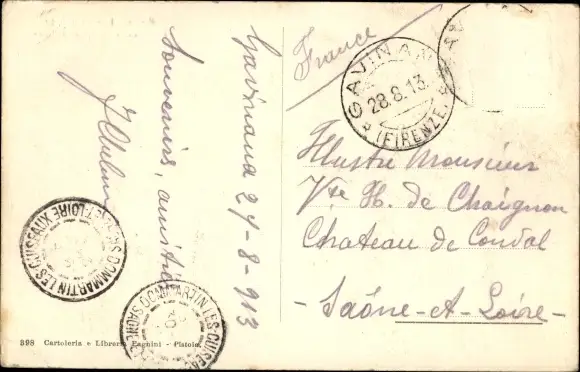 Gavinana 27-8-913
Souvenirs, amitiés
France
GAVINANA
28.8.13
(FIRENZE)
Illustre Monsieur
Vte H. de Chaignon
Chateau de Condal
- Saône-et-Loire -
DOMMARTIN-LES-CUISEAUX
SAÔNE-ET-LOIRE
DOMMARTIN-LES-CUISEAUX
SAÔNE
398 Cartoleria e Libreria Pagnini - Pistoia